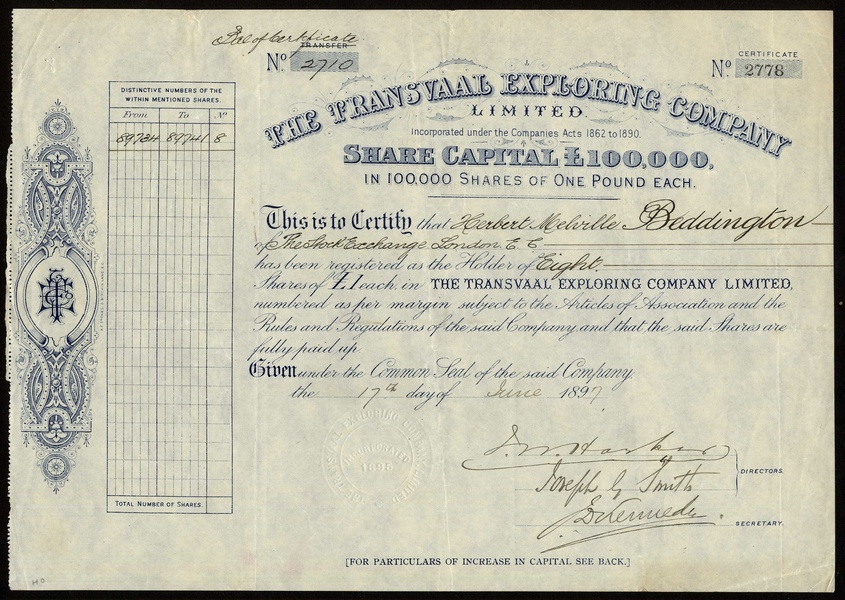 Bal of Certificate
TRANSFER
No. 2710
CERTIFICATE
No. 2778
THE TRANSVAAL EXPLORING COMPANY
LIMITED.
Incorporated under the Companies Acts 1862 to 1890.
SHARE CAPITAL £100,000,
IN 100,000 SHARES OF ONE POUND EACH.
DISTINCTIVE NUMBERS OF THE
WITHIN MENTIONED SHARES.
From To No.
89734 89741 8
TOTAL NUMBER OF SHARES
This is to Certify that Herbert Melville Beddington
of The Stock Exchange London. E C
has been registered as the Holder of Eight.
Shares of £1 each in THE TRANSVAAL EXPLORING COMPANY LIMITED,
numbered as per margin subject to the Articles of Association and the
Rules and Regulations of the said Company, and that the said Shares are
fully paid up.
Given under the Common Seal of the said Company,
the 17th day of June 1897
THE TRANSVAAL EXPLORING COMPANY LIMITED
INCORPORATED
1896
Joseph G Smith
DIRECTORS.
Kennedy
SECRETARY.
[FOR PARTICULARS OF INCREASE IN CAPITAL SEE BACK.]